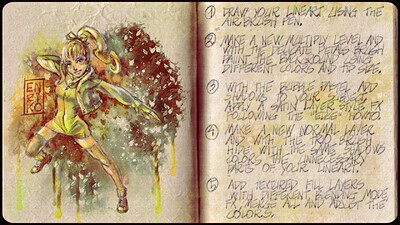 EN
KO
1 DRAW YOUR LINEART USING THE
AIRBRUSH PEN.
2 MAKE A NEW MULTIPLY LEVEL AND
WITH THE DELICATE PETALS BRUSH
PAINT THE BACKGROUND USING
DIFFERENT COLORS AND TIP SIZE.
3 WITH THE BUBBLE PASTEL ADD
SHADOWS TO YOUR SUBJECT.
APPLY A SATIN LAYER STYLE FX
FOLLOWING THE
4 MAKE A NEW NORMAL LAYER
AND WITH THE BRUSH
HIDE WITH THE SAME SHADING
COLORS THE UNNECESSARY
PARTS OF YOUR LINEART.
5 ADD TEXTURED FILL LAYERS
WITH DIFFERENT BLENDING MODE
FX, MERGE ALL AND ADJUST THE
COLORS.